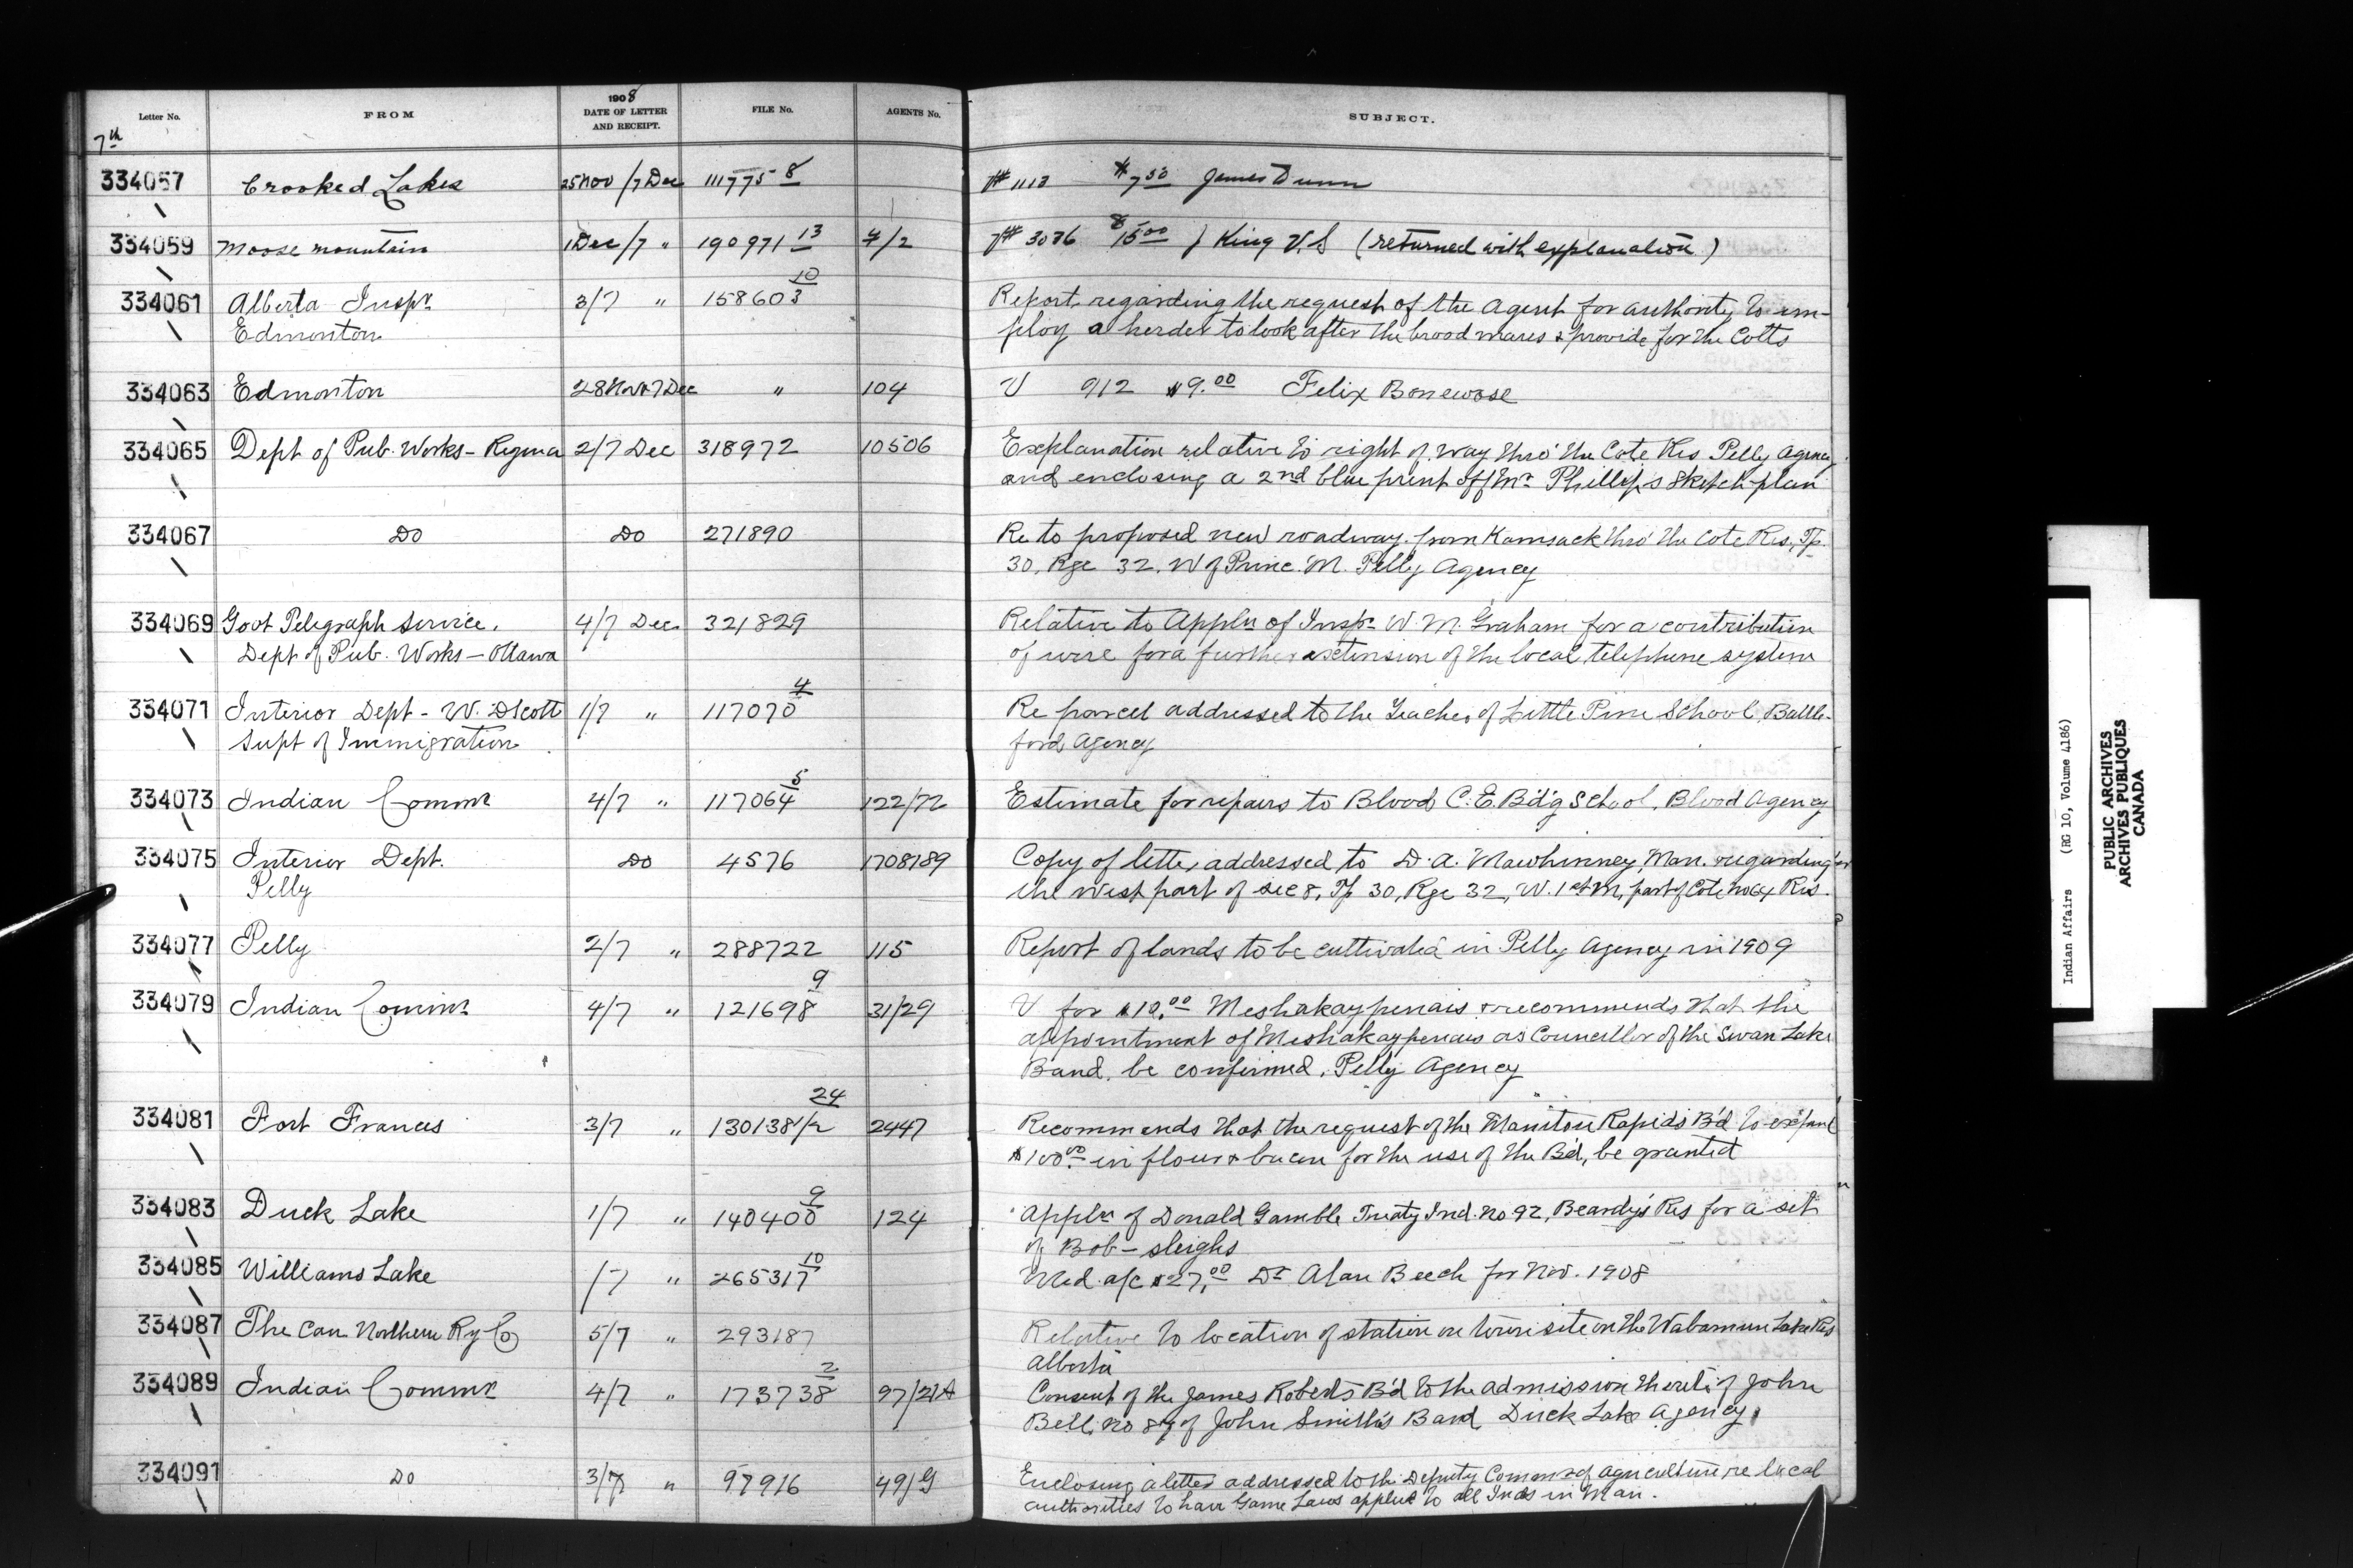 1908
Letter No. FROM DATE OF LETTER AND RECEIPT. FILE No. AGENTS No. SUBJECT.
7th
334057 Crooked Lakes 25 Nov /7 Dec 111775 8 V# 1113 $7.50 James Dunn
334059 Moose mountain 1 Dec /7 " 190971 13 7/2 V# 3076 15.00 King V.S (returned with explanation)
334061 Alberta Inspr. 3/7 " 158603 10 Report regarding the request of the Agent for authority to em-
Edmonton ploy a herder to look after the brood mares & provide for the Colts
334063 Edmonton 28 Nov 7 Dec " 104 V 912 $9.00 Felix Bonewose
334065 Dept of Pub. Works - Regina 2/7 Dec 318972 10506 Explanation relative to right of way thro' the Cote Res Pelly Agency
and enclosing a 2nd blue print of Mr Phillips sketch plan
334067 Do Do 271890 Re to proposed new roadway from Kamsack thro' the Cote Res, Tp.
30, Rge 32, W of Princ. M. Pelly Agency
334069 Govt Telegraph Service. 4/7 Dec. 321829 Relative to Appln of Inspr W. M. Graham for a contribution
Dept of Pub. Works - Ottawa of wire for a further extension of the local telephone system
334071 Interior Dept - W. D Scott 1/7 " 117070 4 Re parcel addressed to the Teacher of Little Pine School, Battle-
Supt of Immigration ford Agency
334073 Indian Commr 4/7 " 117064 5 122/72 Estimate for repairs to Blood C.E. B'd'g School, Blood Agency
334075 Interior Dept. Do 4576 1708189 Copy of letter addressed to D. A. Mawhinney, Man. regarding
Pelly the west part of sec 8, Tp 30, Rge 32, W. 1st M, part of Cote No 64 Res.
334077 Pelly 2/7 " 288722 115 Report of lands to be cultivated in Pelly Agency in 1909
334079 Indian Commr 4/7 " 121698 9 31/29 V for $10.00 Meshakaypenais & recommends that the
appointment of Meshakaypenais as Councillor of the Swan Lake
Band, be confirmed, Pelly Agency
334081 Fort Frances 3/7 " 130138 1/2 24 2447 Recommends that the request of the Manitou Rapids B'd to expend
$100.00 in flour & bacon for the use of the B'd, be granted
334083 Duck Lake 1/7 " 140400 9 124 Appln of Donald Gamble Treaty Ind. No 92, Beardy's Res for a set
of Bob-sleighs
334085 Williams Lake /7 " 265317 10 Med. a/c $27.00 Dr Alan Beech for Nov. 1908
334087 The Can Northern Ry Co 5/7 " 293187 Relative to location of station on townsite on the Wabamun Lake Res
Alberta
334089 Indian Commr 4/7 " 173738 2 97/21A Consent of the James Roberts B'd to the admission thereto of John
Bell, No 87 of John Smith's Band Duck Lake Agency
334091 Do 3/7 " 97916 49/G Enclosing a letter addressed to the Deputy Commr of Agriculture re local
authorities to have Game Laws applied to all Inds in Man.
Indian Affairs (RG 10, Volume 4186)
PUBLIC ARCHIVES
ARCHIVES PUBLIQUES
CANADA